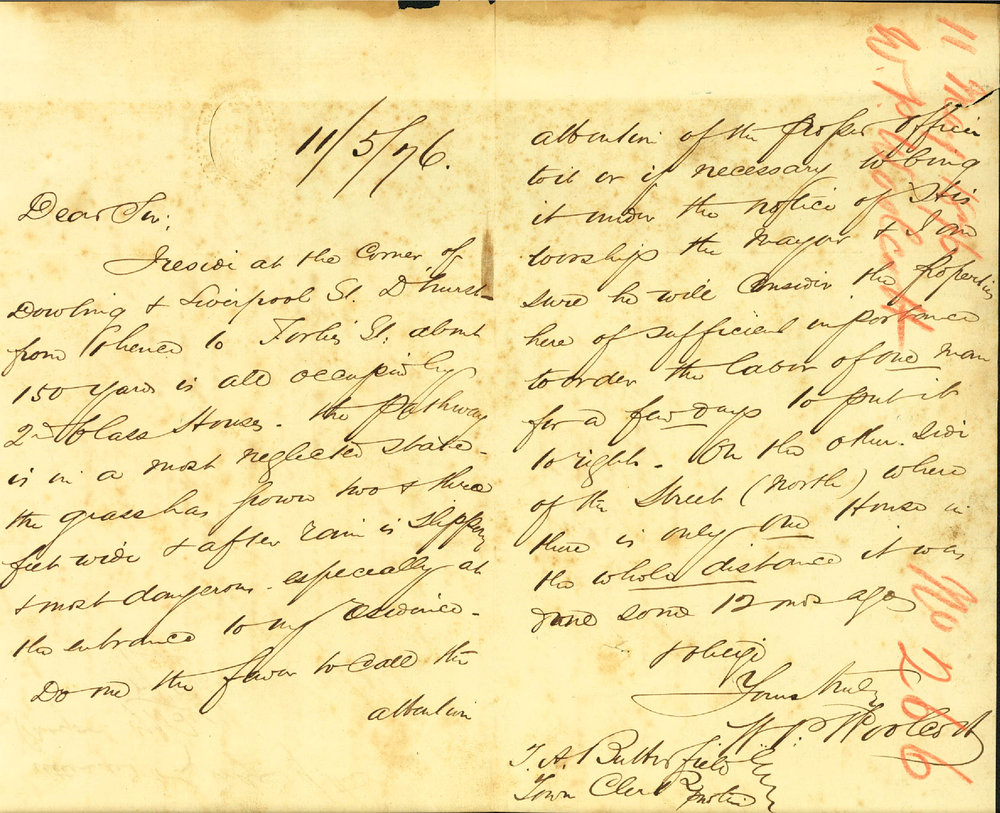 11/5/76.
Dear Sir:
I reside at the Corner of
Dowling & Liverpool St. D'hurst
from thence to Forbes St. about
150 yards is all occupied by
2nd Class Houses. the Pathway
is in a most neglected state.
the grass has grown two & three
feet wide & after rain is slippery
& most dangerous. especially at
the entrance to my residence.
Do me the favor to call the
attention
attention of the proper officer
to it or if necessary to bring
it under the notice of His
worship the Mayor & I am
sure he will consider the properties
here of sufficient importance
to order the labor of one man
for a few days to put it
to rights. On the other side
of the Street (North) where
there is only one House in
the whole distance it was
done some 12 mos ago
& oblige
Yours truly
W. P. Woolcott
T. A. Butterfield Esq
Town Clerk
11 May 1876
W. P. Woolcott
No 266